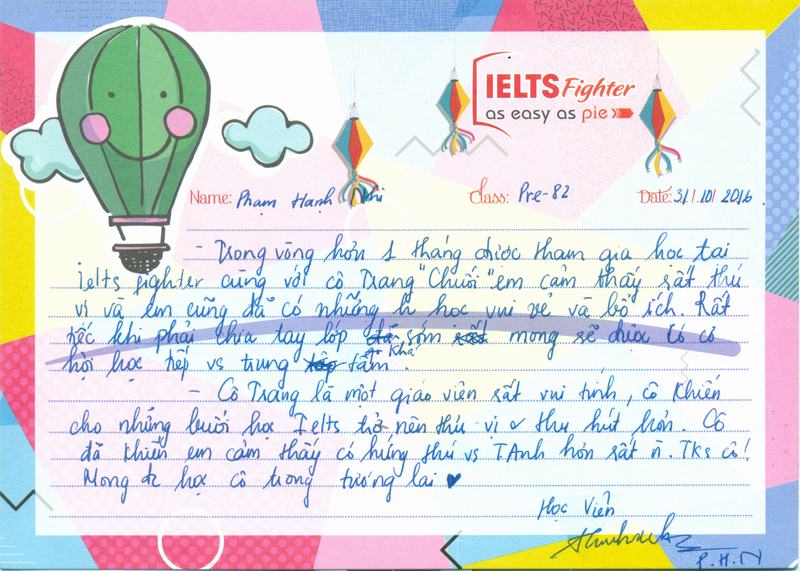 IELTS Fighter
as easy as pie
Name: Phạm Hạnh Nhi Class: Pre-82 Date: 31/.10/ 2016
- Trong vòng hơn 1 tháng được tham gia học tại
ielts fighter cùng với cô Trang "Chuối" em cảm thấy rất thú
vị và em cũng đã có những h học vui vẻ và bổ ích. Rất
tiếc khi phải chia tay lớp khá sớm mong sẽ được có cơ
hội học tiếp vs trung tâm.
- Cô Trang là một giáo viên rất vui tính, cô khiến
cho những buổi học Ielts trở nên thú vị & thu hút hơn. Cô
đã khiến em cảm thấy có hứng thú vs TAnh hơn rất n. Tks cô!
Mong đc học cô trong tương lai ♥
Học Viên
P.H.N